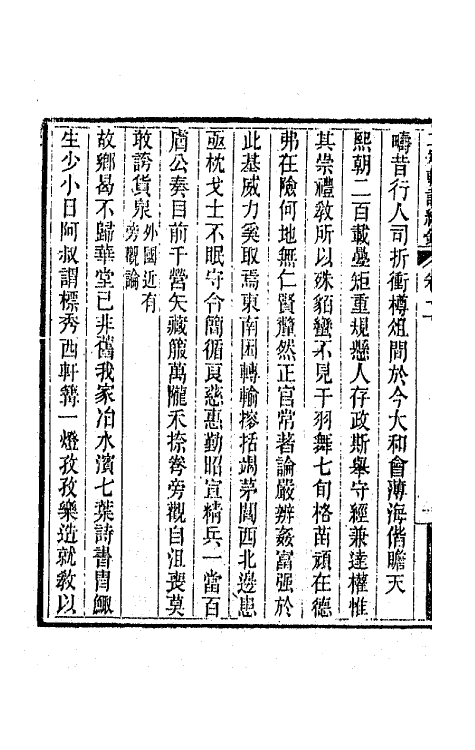 疇昔行人司折衝樽俎間於今大和會薄海偕瞻天
熙朝二百載疊矩重規懸人存政斯舉守經兼達權惟
其崇禮教所以殊貊蠻不見干羽舞七旬格苗頑在德
弗在險何地無仁賢釐然正官常著論嚴辨姦富强於
此基威力奚取焉東南困轉輸摻括竭茅閻西北邊患
亟枕戈士不眠守令簡循良慈惠勤昭宣精兵一當百
膚公奏目前千營矢藏箙萬隴禾捺鎌旁觀自沮喪莫
敢謗貨泉外國近有旁觀論
故鄉曷不歸華堂已非舊我家冶水濱七葉詩書冑鯫
生少小日阿叔謂標秀西軒篝一燈孜孜樂造就教以